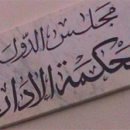 مجلس الدول
محكمة الادار